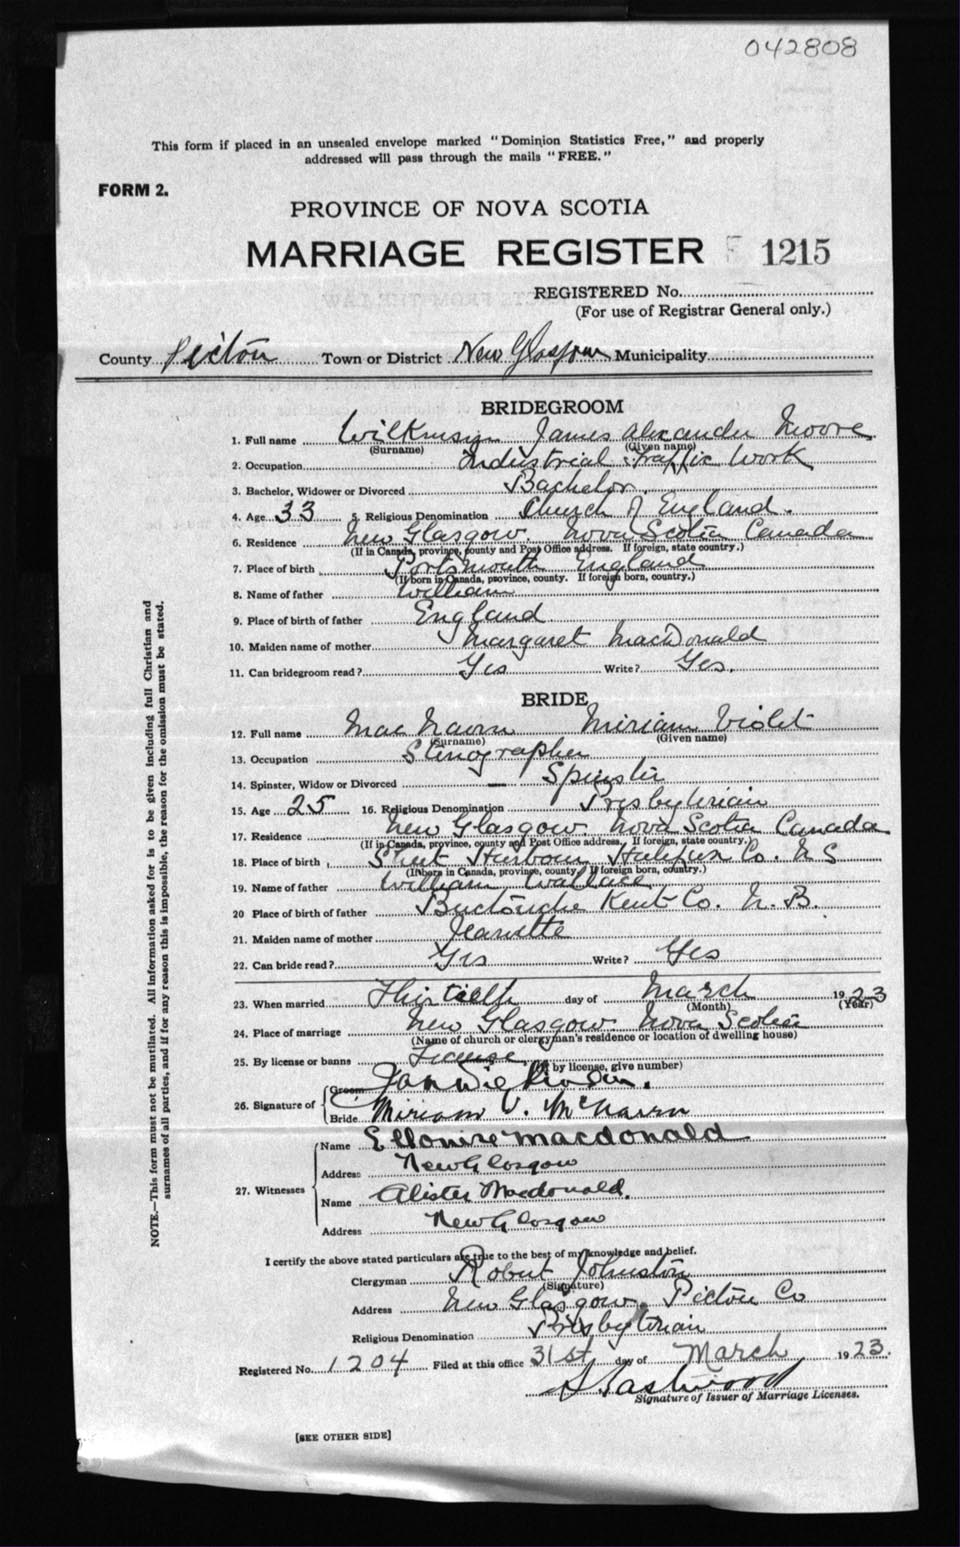 042808
This form if placed in an unsealed envelope marked "Dominion Statistics Free," and properly
addressed will pass through the mails "FREE."
FORM 2.
PROVINCE OF NOVA SCOTIA
MARRIAGE REGISTER 1215
REGISTERED No.
(For use of Registrar General only.)
County Pictou Town or District New Glasgow Municipality
BRIDEGROOM
1. Full name Wilkinson James Alexander Moore
(Surname) (Given name)
2. Occupation Industrial Traffic Work
3. Bachelor, Widower or Divorced Bachelor
4. Age 33 5. Religious Denomination Church of England.
6. Residence New Glasgow. Nova Scotia Canada
(If in Canada, province, county and Post Office address. If foreign, state country.)
7. Place of birth Portsmouth England
(If born in Canada, province, county. If foreign born, country.)
8. Name of father William
9. Place of birth of father England
10. Maiden name of mother Margaret MacDonald
11. Can bridegroom read? Yes Write? Yes.
BRIDE
12. Full name MacNairn Miriam Violet
(Surname) (Given name)
13. Occupation Stenographer
14. Spinster, Widow or Divorced — Spinster
15. Age 25 16. Religious Denomination Presbyterian
17. Residence New Glasgow. Nova Scotia Canada
(If in Canada, province, county and Post Office address, If foreign, state country.)
18. Place of birth Sheet Harbour, Halifax Co. N S
(If born in Canada, province, county. If foreign born, country.)
19. Name of father William Wallace
20 Place of birth of father Buctouche Kent Co. N. B.
21. Maiden name of mother Jeanette
22. Can bride read? Yes Write? Yes
23. When married Thirtieth day of March 1923
(Month) (Year)
24. Place of marriage New Glasgow. Nova Scotia
(Name of church or clergyman's residence or location of dwelling house)
25. By license or banns License
(If by license, give number)
26. Signature of Groom
Bride Miriam V. McNairn
27. Witnesses Name Ellouise Macdonald
Address New Glasgow
Name Alister Macdonald.
Address New Glasgow
I certify the above stated particulars are true to the best of my knowledge and belief.
Clergyman Robert Johnston
(Signature)
Address New Glasgow, Pictou Co
Religious Denomination Presbyterian
Registered No. 1204 Filed at this office 31st day of March 1923.
Eastwood
Signature of Issuer of Marriage Licenses.
[SEE OTHER SIDE]
NOTE.—This form must not be mutilated. All information asked for is to be given including full Christian and
surnames of all parties, and if for any reason this is impossible, the reason for the omission must be stated.